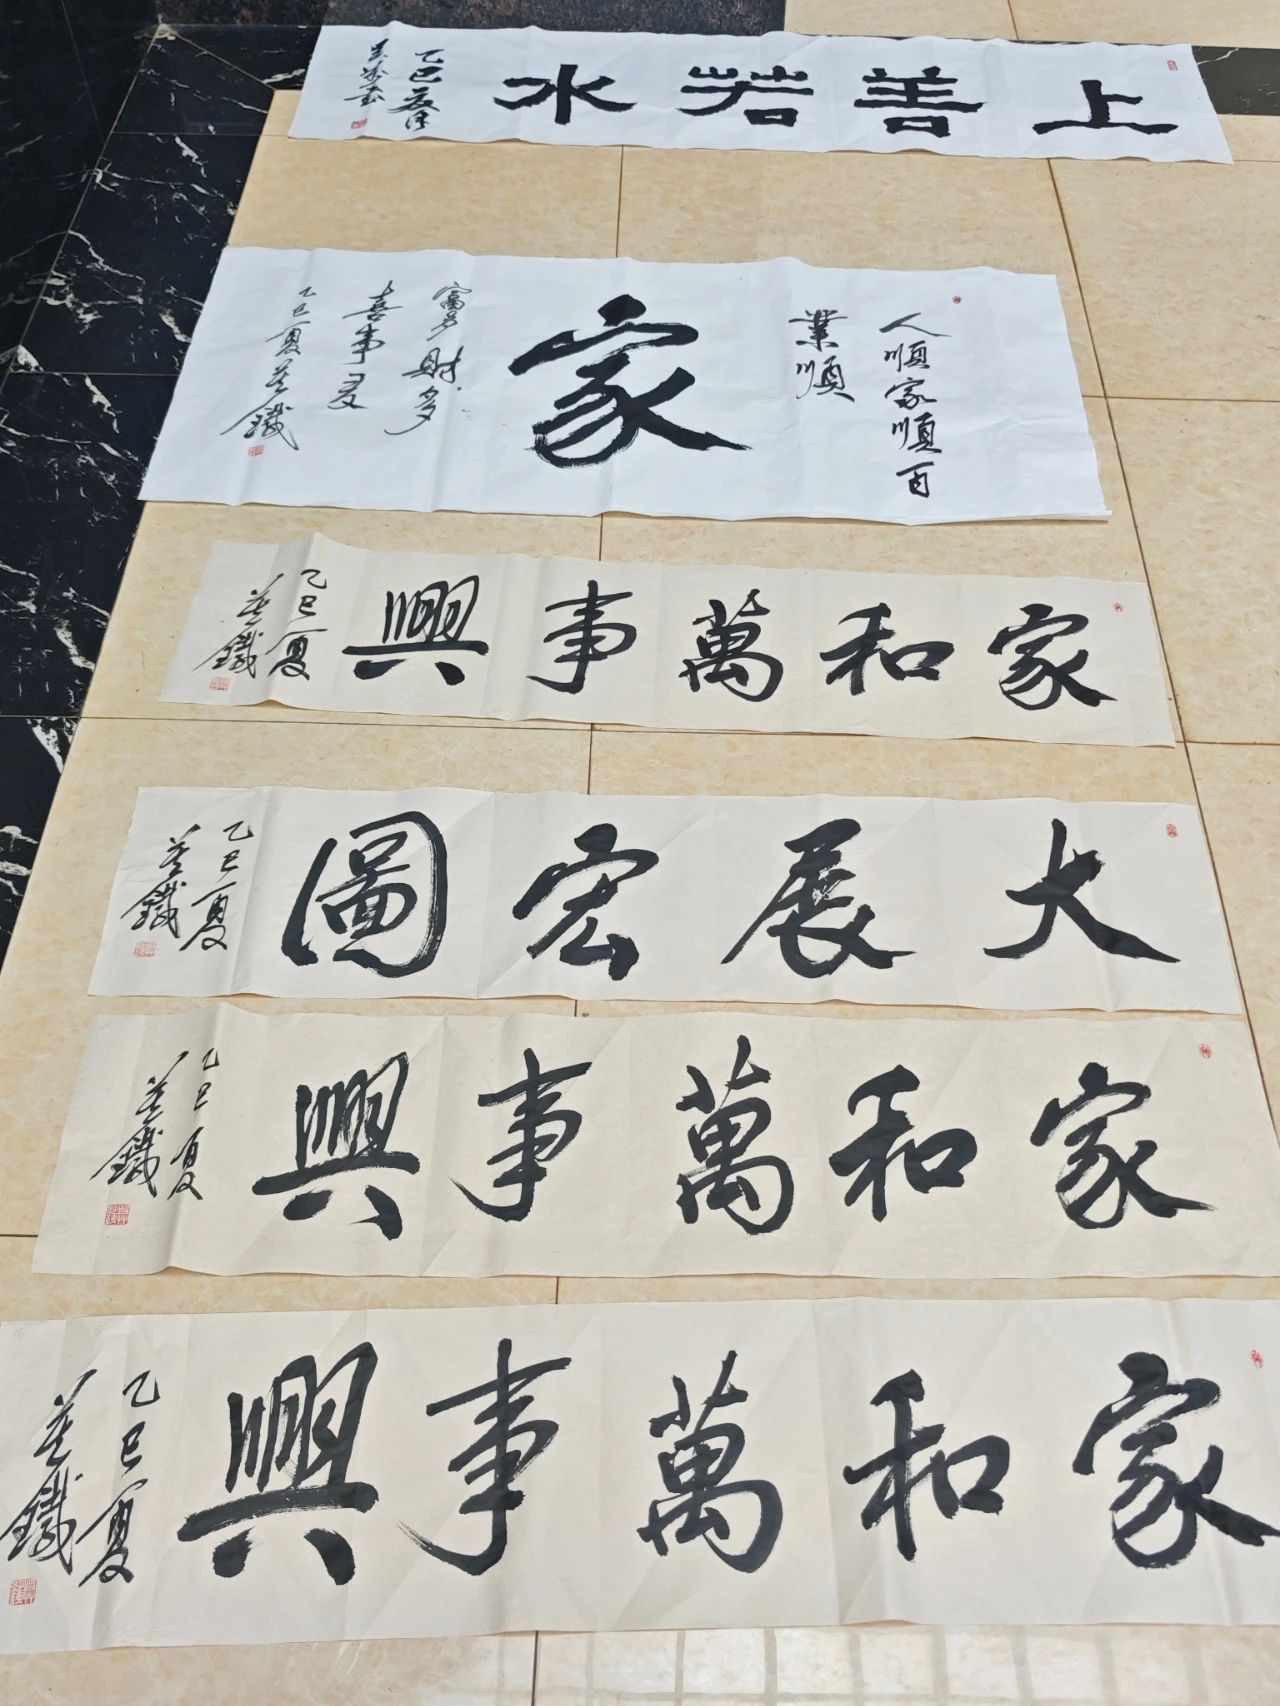 上善若水
乙巳
家
人順家順百
業順
富多財多
喜事多
乙巳夏
鐵
家和萬事興
乙巳夏
鐵
大展宏圖
乙巳夏
鐵
家和萬事興
乙巳夏
鐵
家和萬事興
乙巳夏
鐵